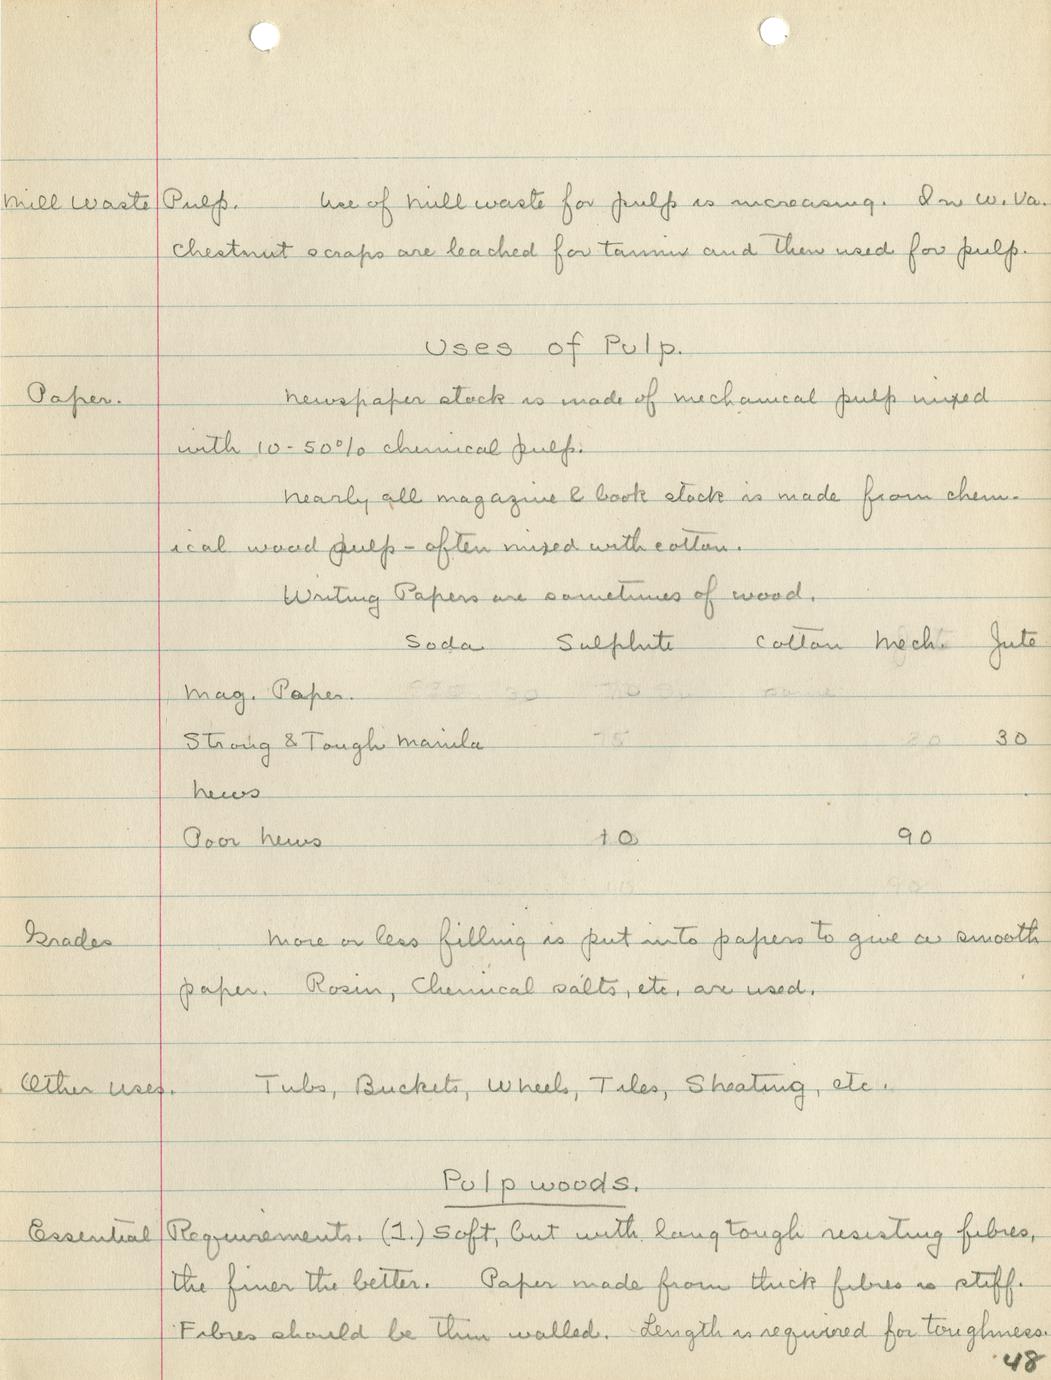 Mill Waste Pulp. Use of mill waste for pulp is increasing. In W. Va.
Chestnut scraps are leached for tannin and then used for pulp.
Uses of Pulp.
Paper. Newspaper stock is made of mechanical pulp mixed
with 10-50% chemical pulp.
Nearly all magazine & book stock is made from chem-
ical wood pulp - often mixed with cotton.
Writing Papers are sometimes of wood.
Soda Sulphite Cotton Mech. Jute
Mag. Paper.
Strong & Tough Manila 30
News
Poor News 10 90
Grades More or less filling is put into papers to give a smooth
paper. Rosin, Chemical salts, etc. are used.
Other Uses. Tubs, Buckets, Wheels, Tiles, Sheating, etc.
Pulp woods.
Essential Requirements. (1.) Soft, but with long tough resisting fibres,
the finer the better. Paper made from thick fibres is stiff.
Fibres should be thin walled. Length is required for toughness.
48